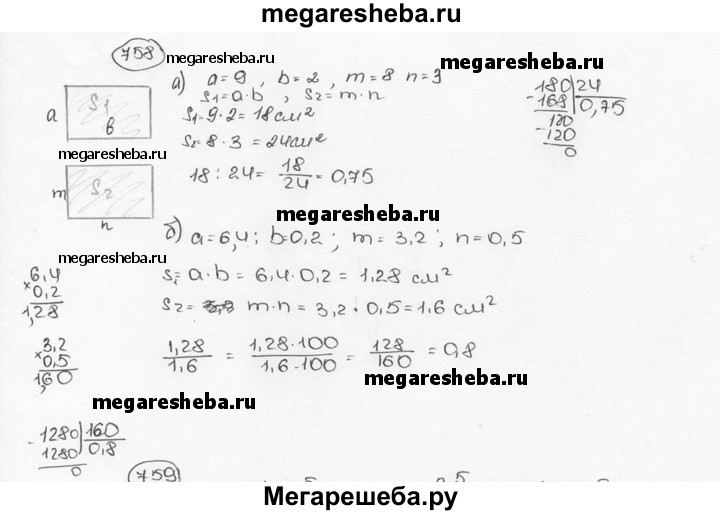 megaresheba.ru
758
megaresheba.ru
megaresheba.ru
а) a=9, b=2, m=8 n=3
S1=a·b, S2=m·n
a
S1
b
S1=9·2=18см²
S2=8·3=24см²
megaresheba.ru
18:24=18/24=0,75
180|24
-168 0,75
120
-120
0
m
S2
n
megaresheba.ru
б) a=6,4; b=0,2; m=3,2; n=0,5
megaresheba.ru
S1=a·b=6,4·0,2=1,28 см²
6,4
×0,2
1,28
S2= m·n=3,2·0,5=1,6 см²
3,2
×0,5
1,60
1,28/1,6 = 1,28·100/1,6·100 = 128/160 = 0,8
megaresheba.ru
megaresheba.ru
-1280|160
1280 0,8
0
759
Мегарешеба.ру